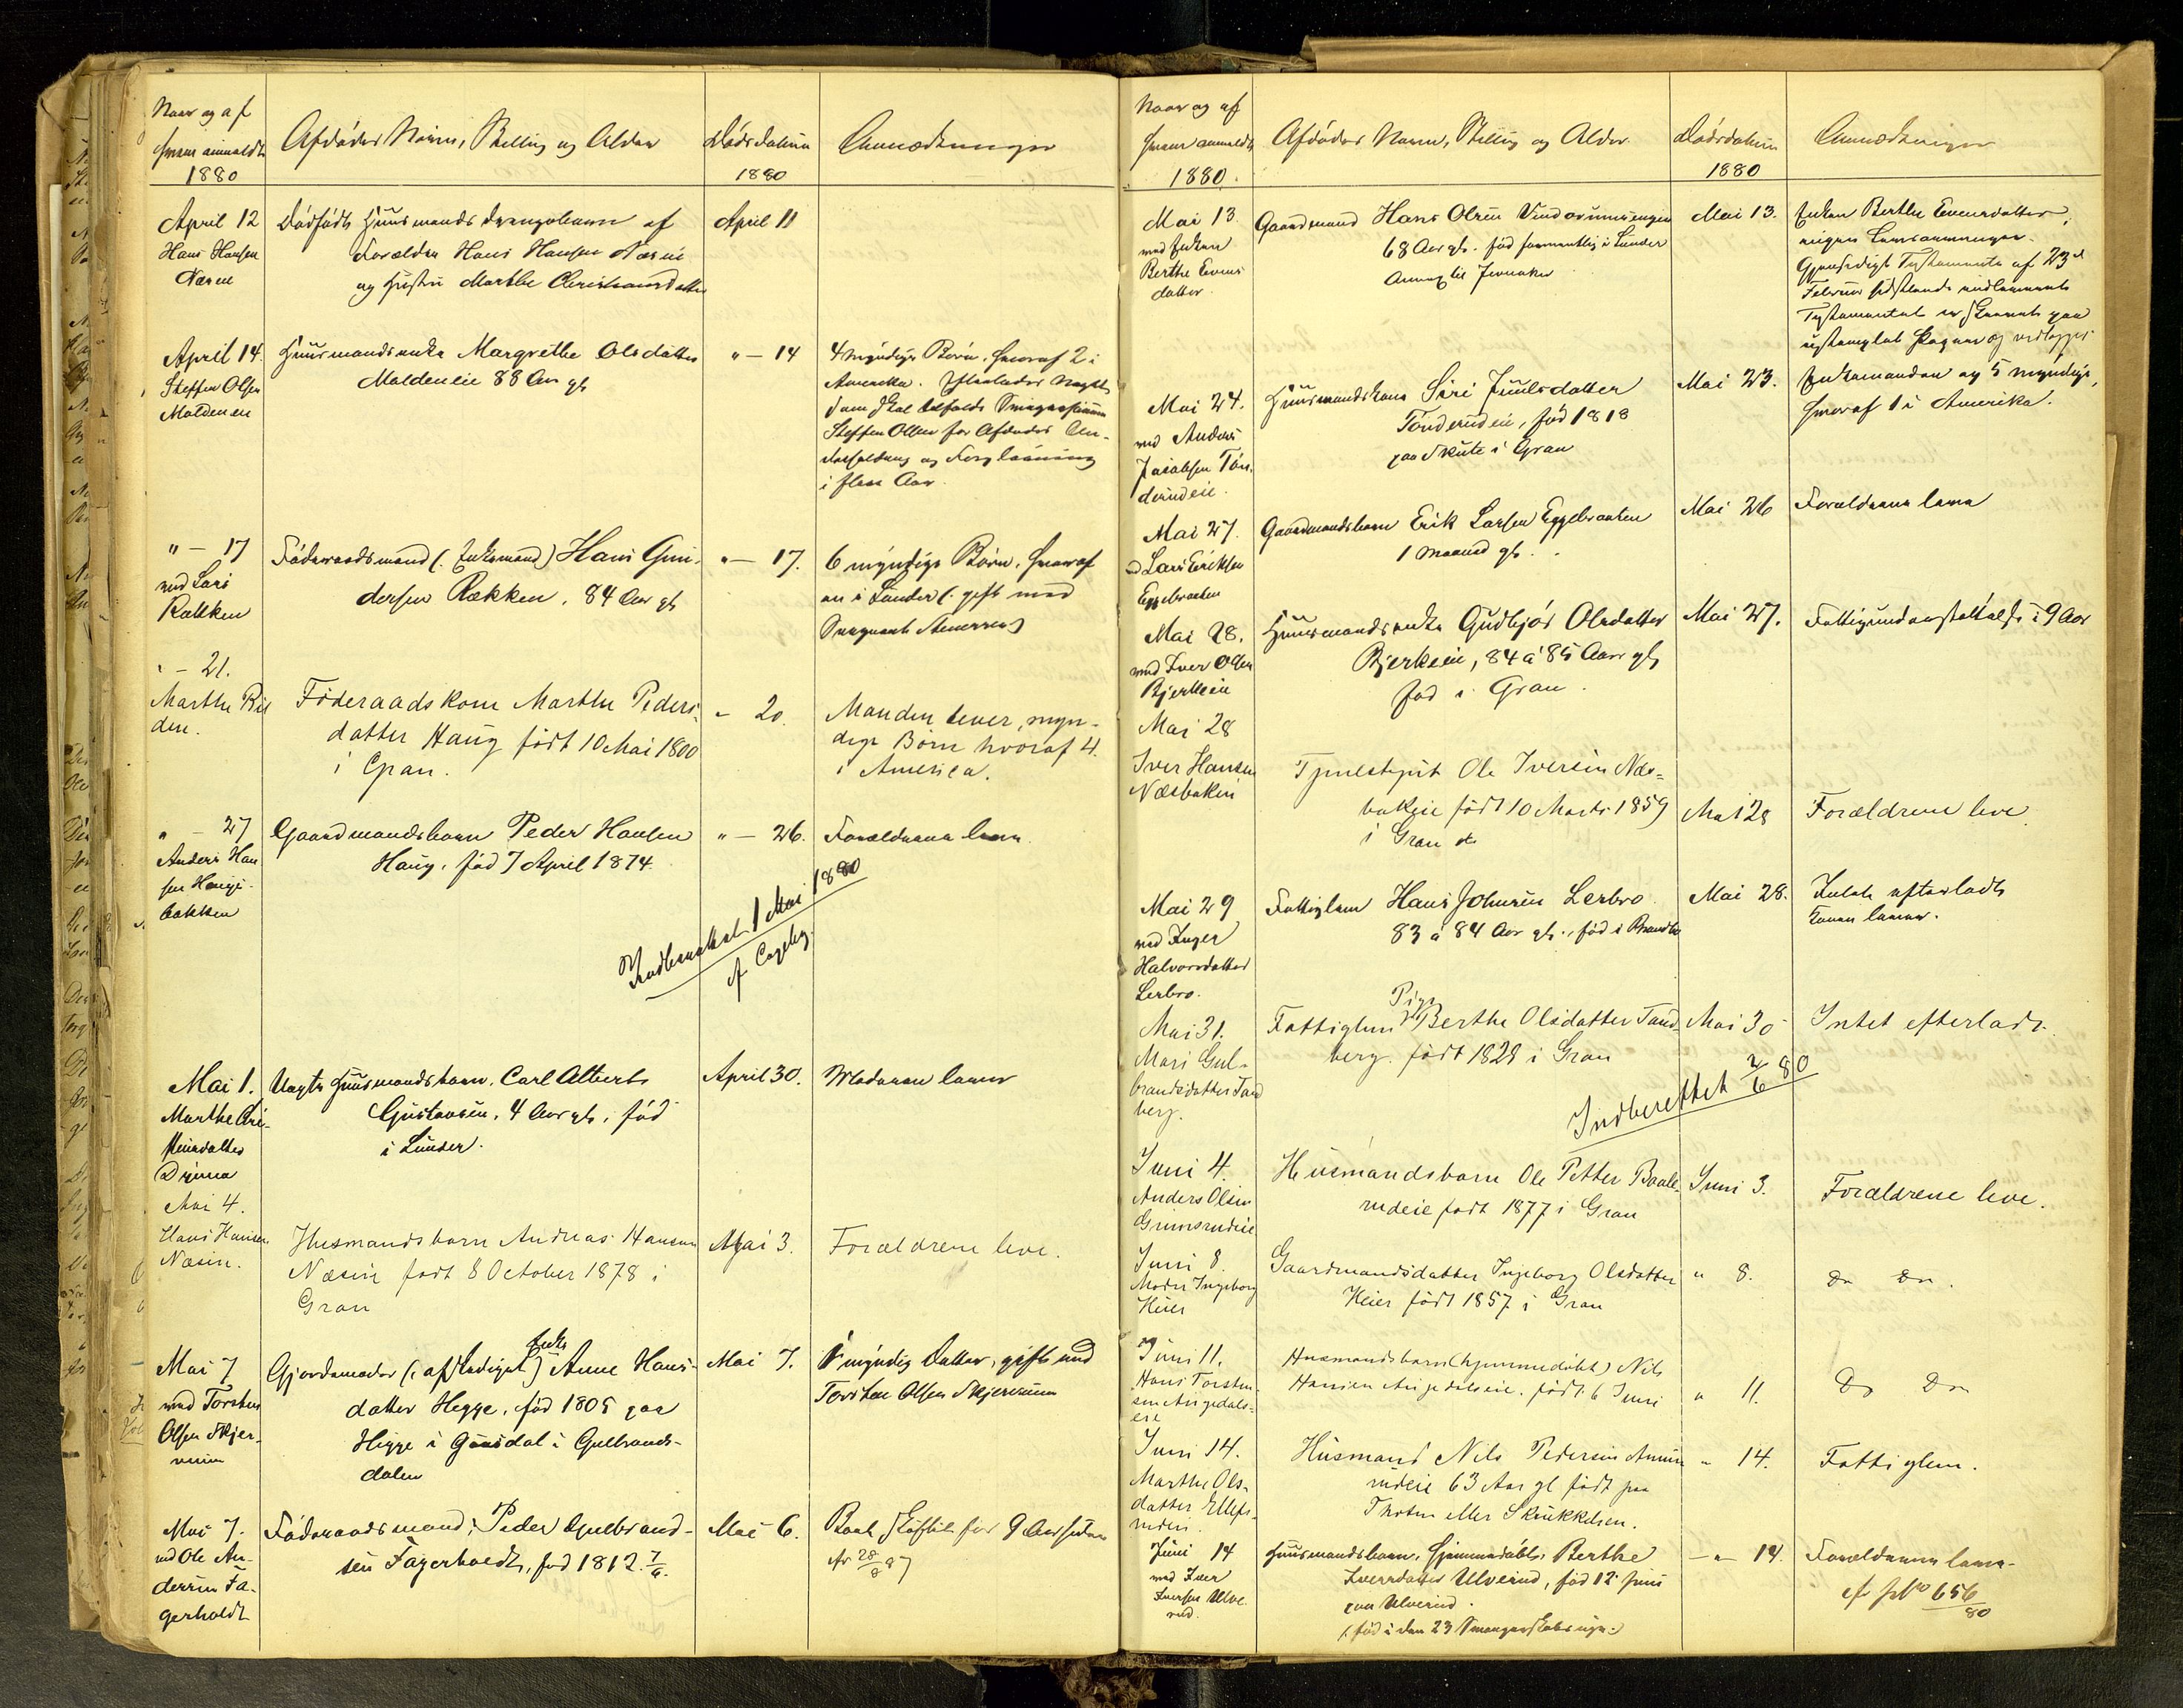 Naar og af
hvem anmeldt
1880
Afdødes Navn, Stilling og Alder
Dødsdatum
1880
Anmærkninger
April 12
Hans Hansen
Næsen
Dødfødt Huusmands drengebarn af
Forældre Hans Hansen Næseie
og Hustru Marthe Christiansdatter
April 11
April 14.
Steffen Olsen
Molden eie
Huusmandsenke Margrethe Olsdatter
Moldeneie 88 Aar gl.
" — 14
4 myndige Børn, hvoraf 2 i
Amerika. Efterlader Noget
som skal tilfalde Svigersønnen
Steffen Olsen for Afdødes Un-
derholdning og Forpleining
i flere Aar.
" — 17
ved Lars
Rækken
Føderaadsmand (Enkemand) Hans Gun-
dersen Rækken, 84 Aar gl.
" — 17.
6 myndige Børn, hvoraf
en i Lunder (gift med
" — 21.
Marthe
den.
Føderaadskone Marthe Peders-
datter Haug født 10 Mai 1800
i Gran.
" 20.
Manden lever, myn-
dige Børn hvoraf 4
i America.
" — 27
Anders Han
sen Haugs-
bakken
Gaardmandsbarn Peder Hansen
Haug, fød 7 April 1874.
" — 26.
Forældrene leve.
Indberettet 1 Mai 1880
Mai 1.
Marthe Chri-
stensdatter
Huusmandsbarn, Carl Albert
Gustavsen, 4 Aar gl., fød
i Lunder.
April 30.
Moderen lever
Mai 4.
Hans Hansen
Næsen.
Husmandsbarn Andreas Hansen
Næseie født 8 October 1878 i
Gran
Mai 3.
Forældrene leve.
Mai 7
ved Torsten
Olsen Skjer-
vum
Enke
Gjordemoder (afskediget) Anne Hans-
datter Hegge, fød 1805 paa
Hegge i Gausdal i Gulbrands-
dalen
Mai 7.
1 myndig Datter, gift med
Torsten Olsen Skjervum
Mai 7.
ved Ole An-
dersen Fa-
gerholdt
Føderaadsmand, Peder Gulbrand-
sen Fagerholdt, fød 1812 7/6.
Mai 6.
Boet skiftet for 9 Aar siden
Naar og af
hvem anmeldt
1880.
Afdødes Navn, Stilling og Alder
Dødsdatum
1880
Anmærkninger
Mai 13.
ved Enken
Berthe Evens
datter.
Gaardmand Hans Olsen
68 Aar gl. fød formentlig i Lunder
Annex til Jevnaker
Mai 13.
Enken Berthe Evensdatter,
ingen Livsarvinger.
Gjensidigt Testamente af 23d
Februar sidstleden
Testamentet er skrevet paa
ustemplet Papir og vedlægges
Mai 24.
ved Anders
Jacobsen Tøn-
derudeie.
Huusmandskone Siri Juulsdatter
Tønderudeie, fød 1818
paa Skute i Gran
Mai 23.
Enkemanden og 5 myndige,
hvoraf 1 i Amerika.
Mai 27.
ved Lars Eriksen
Eggebraaten
Gaardmandsbarn Erik Larsen Eggebraaten
1 Maaned gl.
Mai 26
Forældrene leve
Mai 28.
ved Iver Olsen
Bjerkeeie
Huusmandsenke Gudbjør Olsdatter
Bjerkeeie, 84 a 85 Aar gl.
fød i Gran.
Mai 27.
Fattigunderstøttelse i 9 Aar
Mai 28
Iver Hansen
Næsbakken
Tjenestepit Ole Iversen Næs-
bakken født 10 Marts 1859
i Gran
Mai 28
Forældrene leve
Mai 29
ved Inger
Halvorsdatter
Lerbro.
Fattiglem Hans Johnsen Lerbro
83 a 84 Aar gl., fød i Brandbu
Mai 28.
Intet efterladt
Konen lever.
Mai 31.
Mari Gul-
brandsdatter Tand
berg.
Pige
Fattiglem Berthe Olsdatter Tand-
berg. født 1828 i Gran
Mai 30
Intet efterladt.
Indberettet 2/6 80
Juni 4.
Anders Olsen
Grimsrudeie
Husmandsbarn Ole Petter
rudeie født 1877 i Gran
Juni 3.
Forældrene leve.
Juni 8.
Moder Ingeborg
Heier
Gaardmandsdatter Ingeborg Olsdatter
Heier født 1857 i Gran
" 8.
Do Do.
Juni 11.
Hans Torsten-
sen Angedals-
eie
Husmandsbarn (hjemmedøbt) Nils
Hansen Angedalseie. født 6 Juni
" 11.
Do Do
Juni 14.
Marthe Ols-
datter Ellefs-
rudeie.
Husmand Nils Pedersen
rudeie 63 Aar gl født paa
Thoten eller Skrukkelien.
" 14.
Fattiglem.
Juni 14
ved Iver
Iversen Ulve-
rud.
Huusmandsbarn, hjemmedøbt, Berthe
Iversdatter Ulverud, fød 12 Juni
paa Ulverud.
(fød i den 23 Svangerskabsuge.)
— " — 14.
Forældrene leve.
656/80